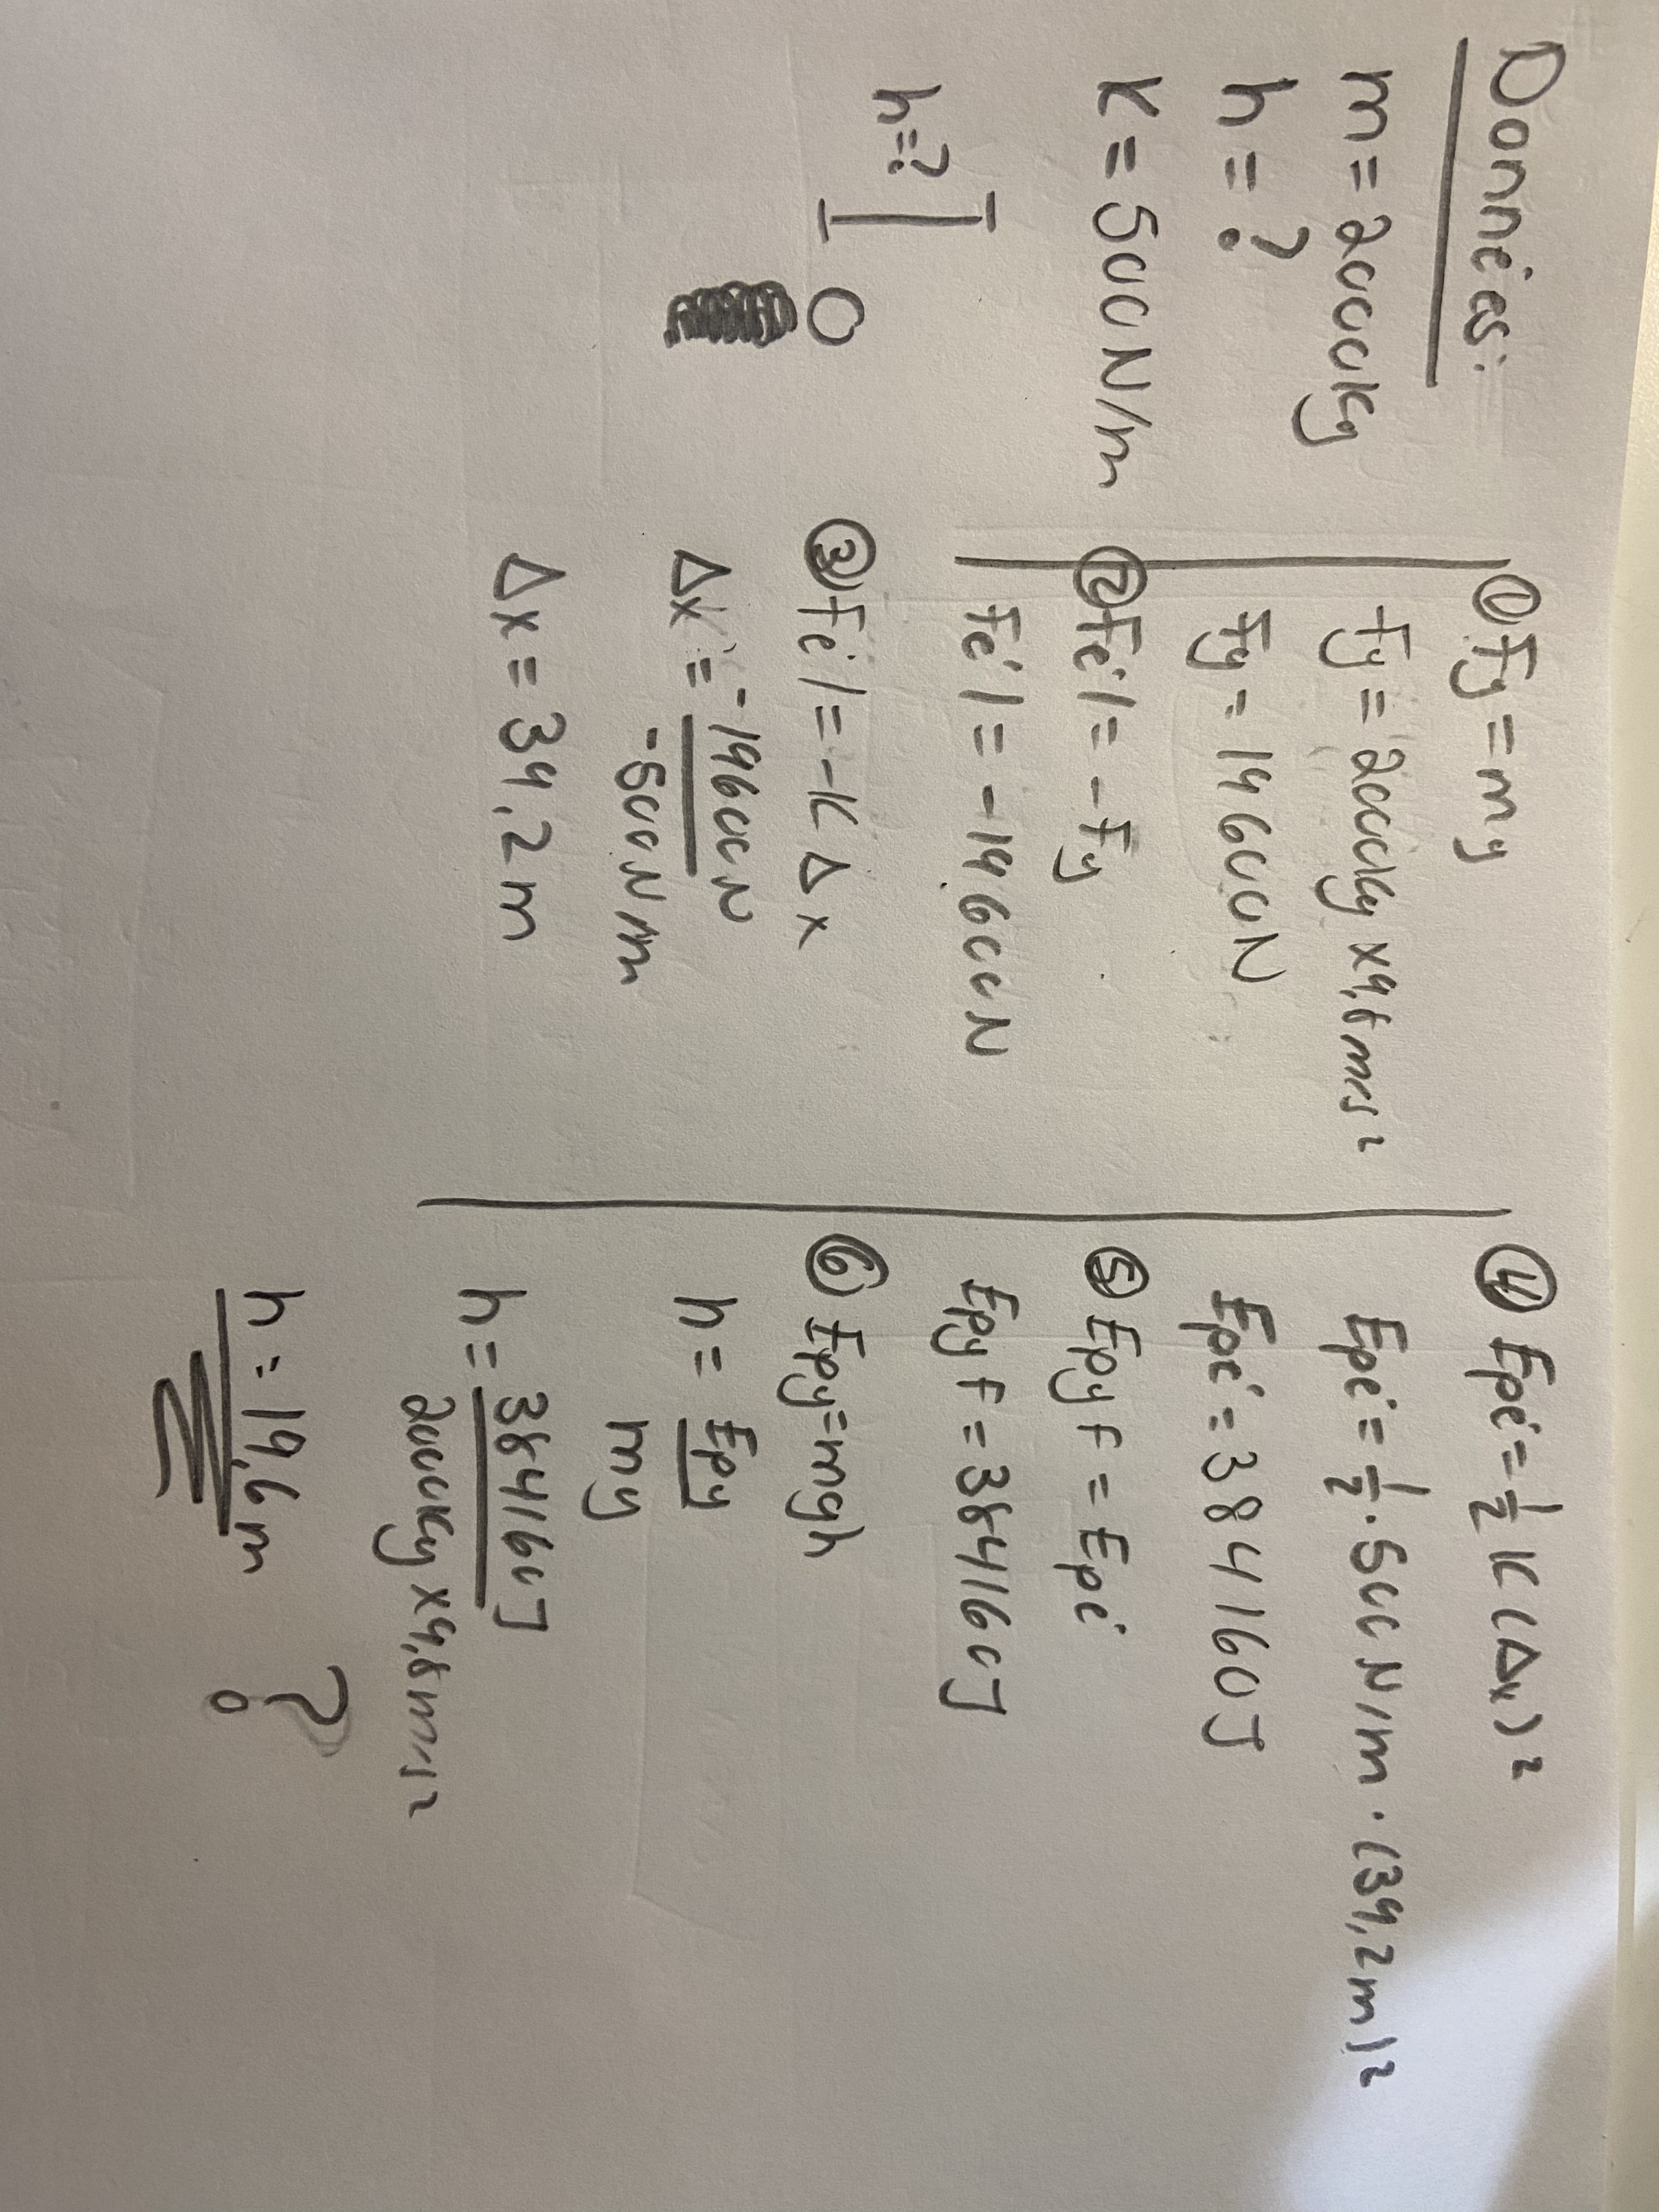 Données:
m = 2000kg
h = ?
K = 500N/m
h=?
① Fg = mg
Fg = 2000kg x9,8m/s²
Fg = 19600N
② Fél = -Fg
Fél = -19600N
③ Fél = -K Δx
Δx = -19600N
-500N/m
Δx = 39,2m
④ Epé = 1/2 K (Δx)²
Epé = 1/2 · 500 N/m · (39,2m)²
Epé = 384160J
⑤ Epg F = Epé
Epg F = 384160J
⑥ Epg = mgh
h = Epg
mg
h = 384160J
2000kg x9,8m/s²
h = 19,6m ?